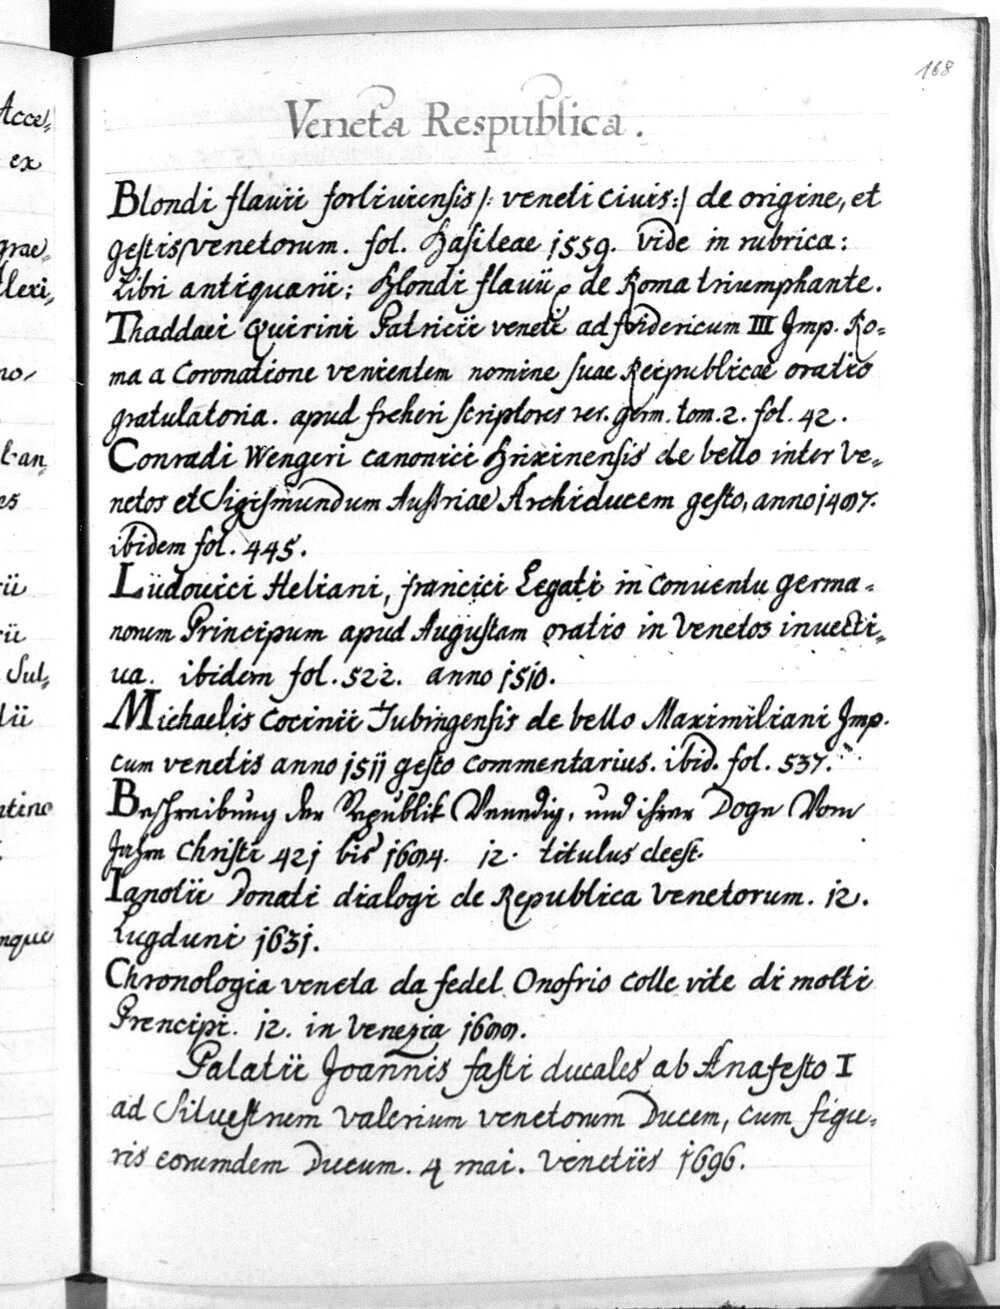 Acce,
ex
grae,
lexi,
no,
l. an,
es
rii
rii
Sul,
lii
ntino
nque
168
Veneta Respublica.
Blondi flavii forliviensis /: veneti civis:/ de origine, et
gestis venetorum. fol. Basileae 1559. vide in rubrica:
Libri antiquarii: Blondi flavii de Roma triumphante.
Thaddaei Quirini Patricii veneti ad fridericum III Imp. Ro=
ma a Coronatione venientem nomine suae Reipublicae oratio
gratulatoria. apud freheri scriptores rer. germ. tom. 2. fol. 42.
Conradi Wengeri canonici Brixinensis de bello inter Ve,
netos et Sigismundum Austriae Archiducem gesto, anno 1487.
ibidem fol. 445.
Ludovici Heliani, francici Legati in Conventu germa=
norum Principum apud Augustam oratio in Venetos invecti,
va. ibidem fol. 522. anno 1510.
Michaelis Coccinii Tubingensis de bello Maximiliani Imp.
cum venetis anno 1511 gesto commentarius. ibid. fol. 537.
Beschreibung der Republik Venedig, und ihrer Doge Vom
Jahm Christi 421 bis 16 4. 12. titulus deest.
Ianotii Donati dialogi de Republica venetorum. 12.
Lugduni 1631.
Chronologia veneta da fedel Onofrio Colle vite di molti
Prencipi. 12. in Venezia
Palatii Joannis fasti ducales ab Anafesto I
ad Silvestrum Valerium venetorum Ducem, cum figu,
ris eorumdem Ducum. 4 mai. Venetiis 1696.